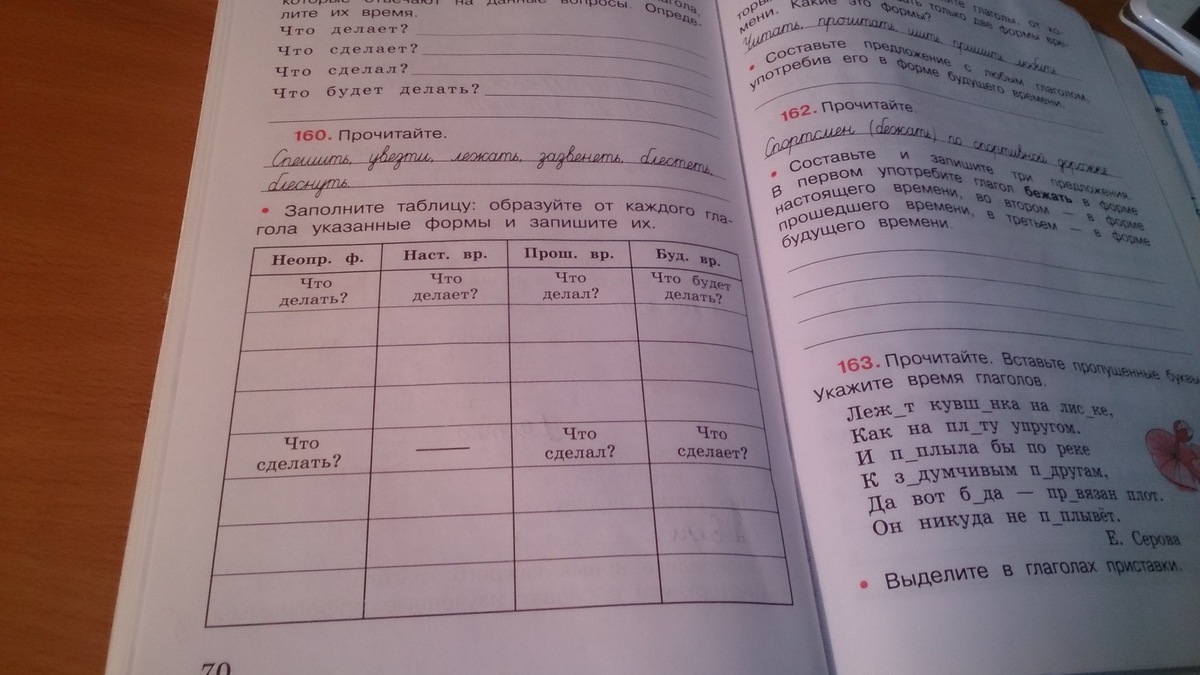 которые отвечают на данные вопросы. Опреде-
лите их время.
Что делает?
Что сделает?
Что сделал?
Что будет делать?
160. Прочитайте.
Спешить, увезти, лежать, зазвенеть, блестеть,
блеснуть.
• Заполните таблицу: образуйте от каждого гла-
гола указанные формы и запишите их.
Неопр. ф. Наст. вр. Прош. вр. Буд. вр.
Что делать? Что делает? Что делал? Что будет делать?
Что сделать? — Что сделал? Что сделает?
70
глаголы, от ко-
только две формы вре-
мени. Какие это формы?
Читать, прочитать, шить, пришить, любить.
• Составьте предложение с любым глаголом,
употребив его в форме будущего времени.
162. Прочитайте.
Спортсмен (бежать) по спортивной дорожке.
• Составьте и запишите три предложения.
В первом употребите глагол бежать в форме
настоящего времени, во втором — в форме
прошедшего времени, в третьем — в форме
будущего времени.
163. Прочитайте. Вставьте пропущенные буквы.
Укажите время глаголов.
Леж_т кувш_нка на лис_ке,
Как на пл_ту упругом.
И п_плыла бы по реке
К з_думчивым п_другам,
Да вот б_да — пр_вязан плот.
Он никуда не п_плывёт.
Е. Серова
• Выделите в глаголах приставки.